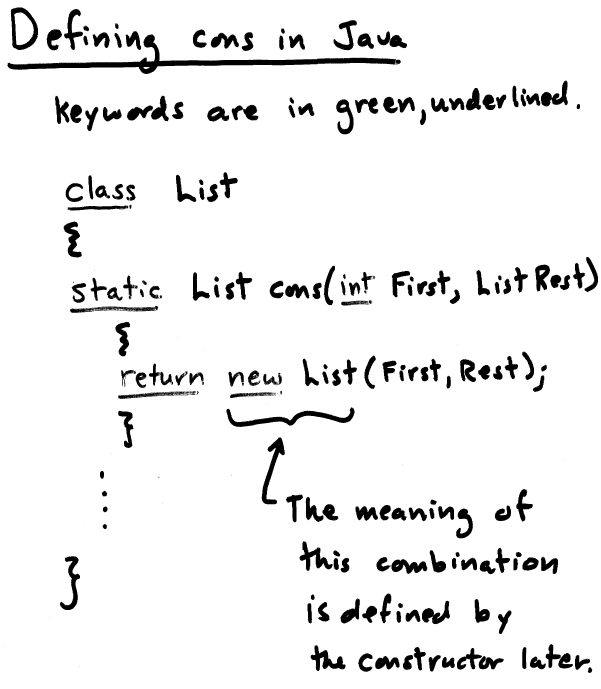 Defining cons in Java
Keywords are in green, underlined.
class List
{
static List cons(int First, List Rest)
{
return new List(First, Rest);
}
The meaning of
this combination
is defined by
the constructor later.
}